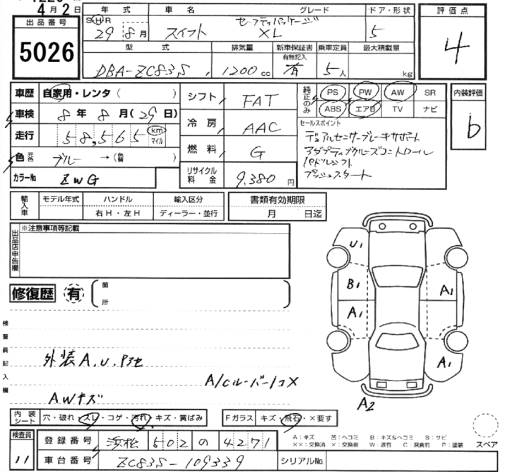 4月2日
出品番号
5026
年式 車名 グレード ドア・形状
29年8月 スイフト セーフティパッケージ XL 5
型式 排気量 新車保証書 乗車定員 最大積載量
有無記入
DBA-ZC83S 1200cc 有 5人 kg
評価点
4
内装評価
b
車歴 自家用・レンタ( )
車検 8年8月(29日)
走行 58,565 km マイル
色 ブルー→( )
カラーNo ZWG
シフト FAT
冷房 AAC
燃料 G
リサイクル料金 9,380円
純正のみ PS PW AW SR
ABS エアB TV ナビ
セールスポイント
デュアルセンサーブレーキサポート
アダプティブクルーズコントロール
パドルシフト
プッシュスタート
輸入車 モデル年式 ハンドル 輸入区分
右H・左H ディーラー・並行
書類有効期限
月 日迄
出品店申告欄
※注意事項等記載
修復歴 有 箇所
検査員記入欄
外装A,U,P跡
A/CルーバーコX
AWキズ
U1
B1
A1
A1
A1
A2
内装シート 穴・破れ・スレ・コゲ・汚れ・キズ・黄ばみ
Fガラス キズ・飛石・×要す
A:キズ
スペア
検査員
11
登録番号 浜松 502 の 4271
車台番号 ZC83S-109339
シリアルNo